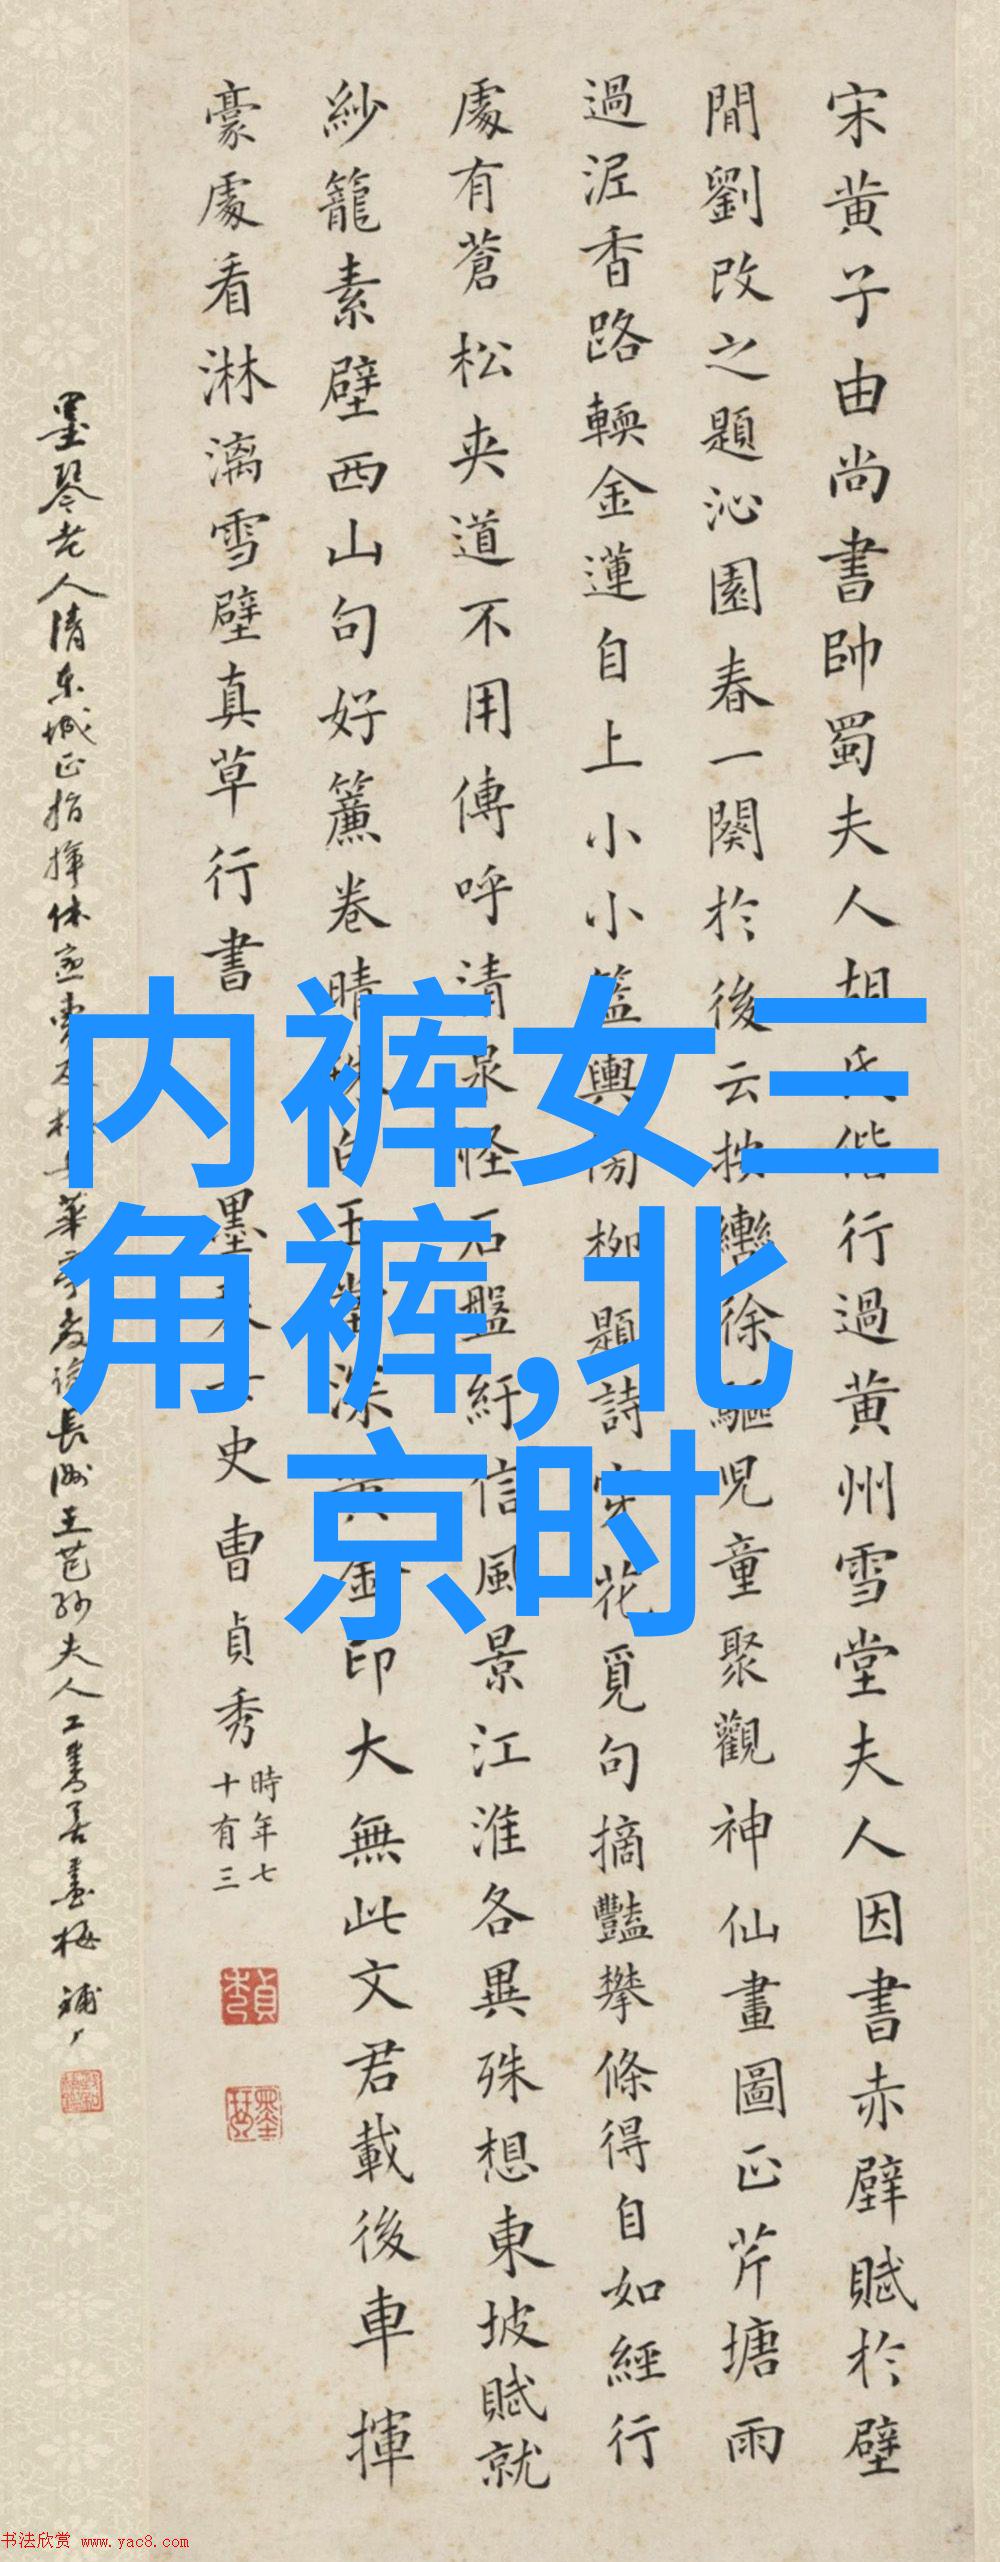 宋黄子由尚書帥蜀夫人胡氏偕行過黄州雪堂夫人因書赤壁賦於壁
間劉改之題沁園春一闋於後云按轡徐驅兒童聚觀神仙畫圖正芹塘雨
過泥香路輭金蓮自上小小籃輿傍柳題詩穿花覓句摘豔攀條得自如經行
處有蒼松夾道不用傳呼清泉怪石盤紆信風景江淮各異殊想東坡賦就
紗籠素壁西山句好簾卷晴珠白玉堂深黄金印大無此文君載後車揮
豪處看淋漓雪壁真草行書
墨琴女史曹貞秀
時年七
十有三
墨琴老人清東城正指揮
長洲王芑孫夫人工書善畫梅
内裤女三
角裤,北
京时
书法欣赏 www.yac8.com